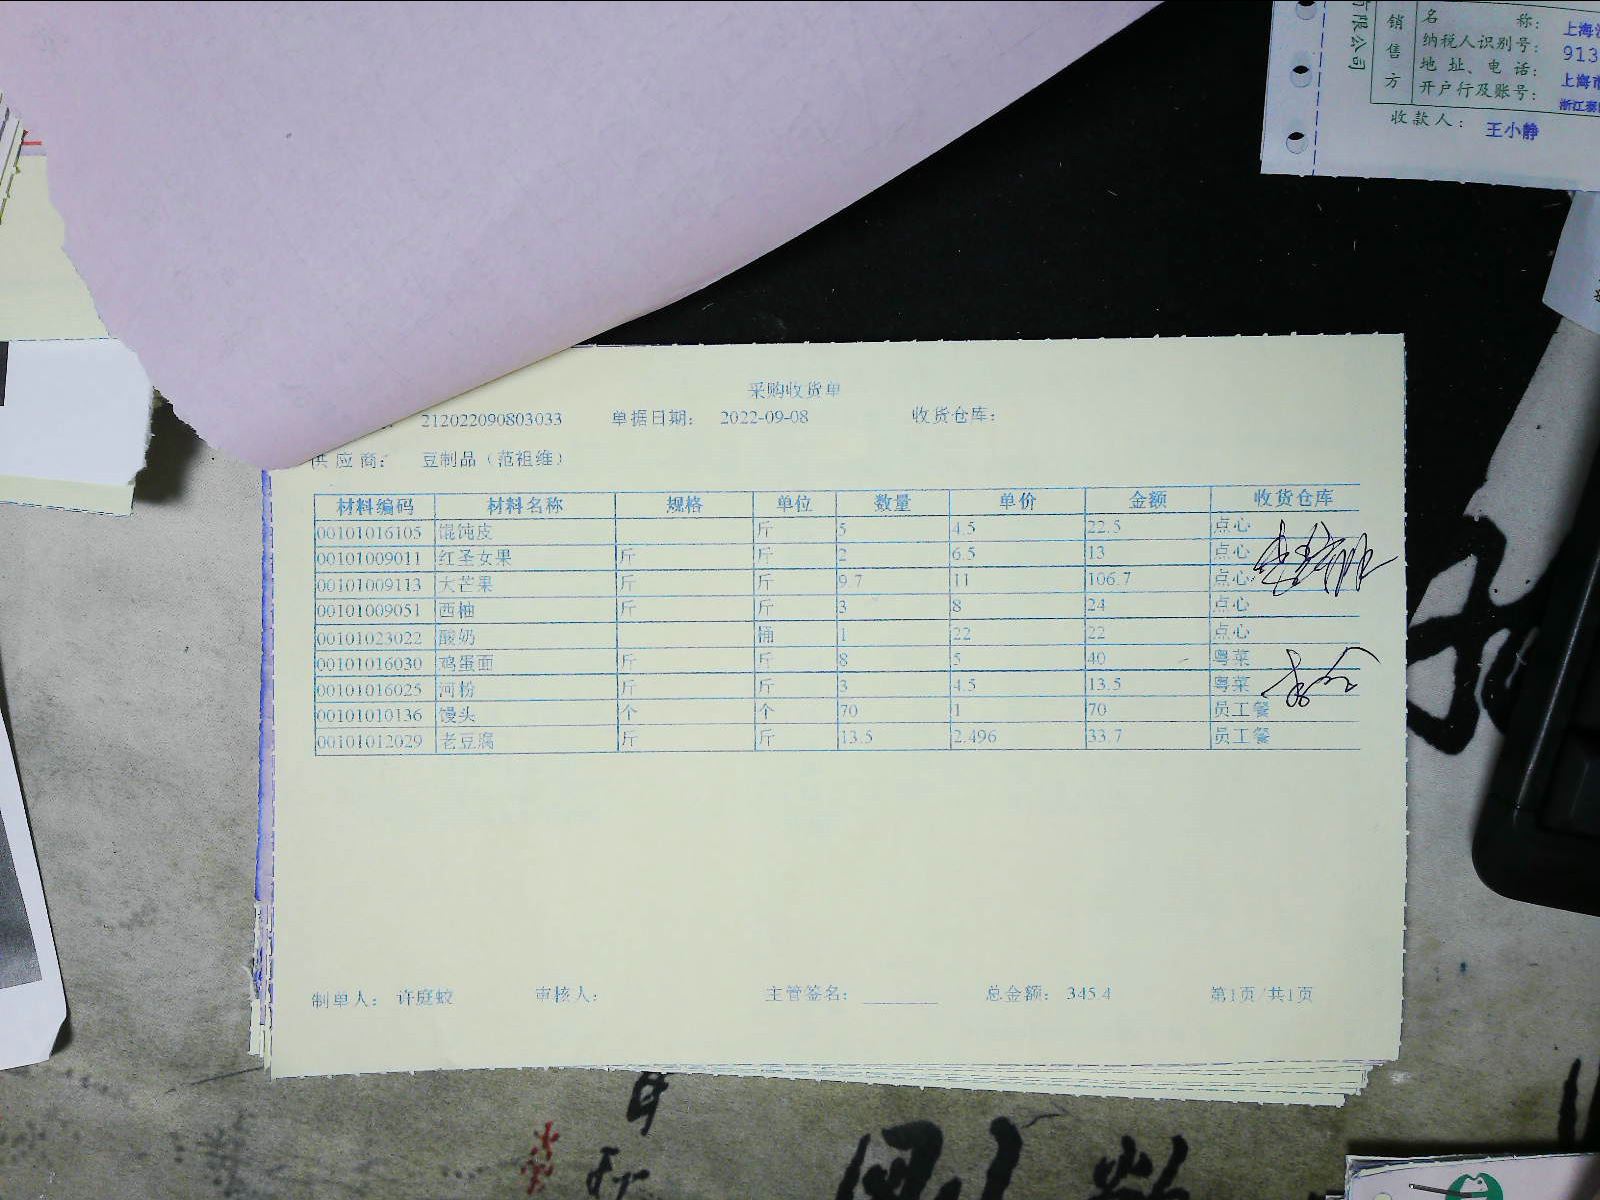 有限公司
销售方
名 称: 上海
纳税人识别号: 913
地址、电话: 上海市
开户行及账号: 浙江泰
收款人: 王小静
采购收货单
212022090803033 单据日期: 2022-09-08 收货仓库:
供应商: 豆制品（范祖维）
材料编码 材料名称 规格 单位 数量 单价 金额 收货仓库
00101016105 馄饨皮 斤 5 4.5 22.5 点心
00101009011 红圣女果 斤 斤 2 6.5 13 点心
00101009113 大芒果 斤 斤 9.7 11 106.7 点心
00101009051 西柚 斤 斤 3 8 24 点心
00101023022 酸奶 桶 1 22 22 点心
00101016030 鸡蛋面 斤 斤 8 5 40 粤菜
00101016025 河粉 斤 斤 3 4.5 13.5 粤菜
00101010136 馒头 个 个 70 1 70 员工餐
00101012029 老豆腐 斤 斤 13.5 2.496 33.7 员工餐
制单人: 许庭蛟 审核人: 主管签名: 总金额: 345.4 第1页/共1页